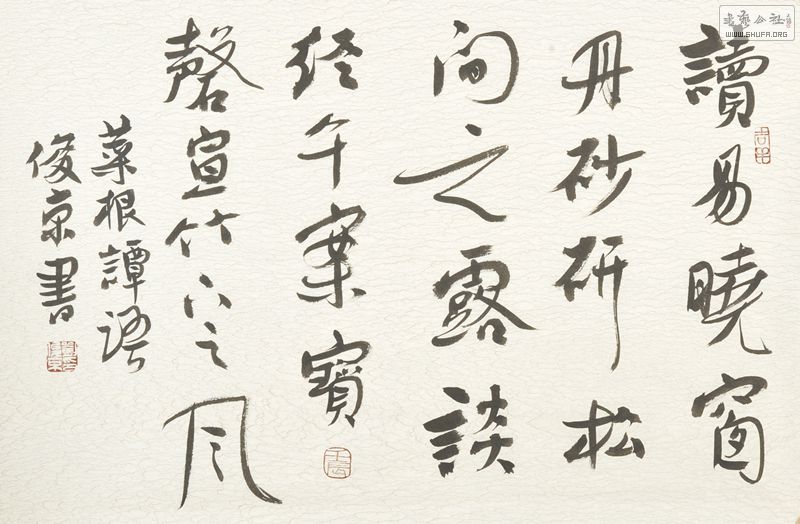 讀易曉窗
丹砂研松
间之露談
经午案寳
磬宣竹下之风
菜根譚語
俊京書
書藝公社
WWW.SHUFA.ORG